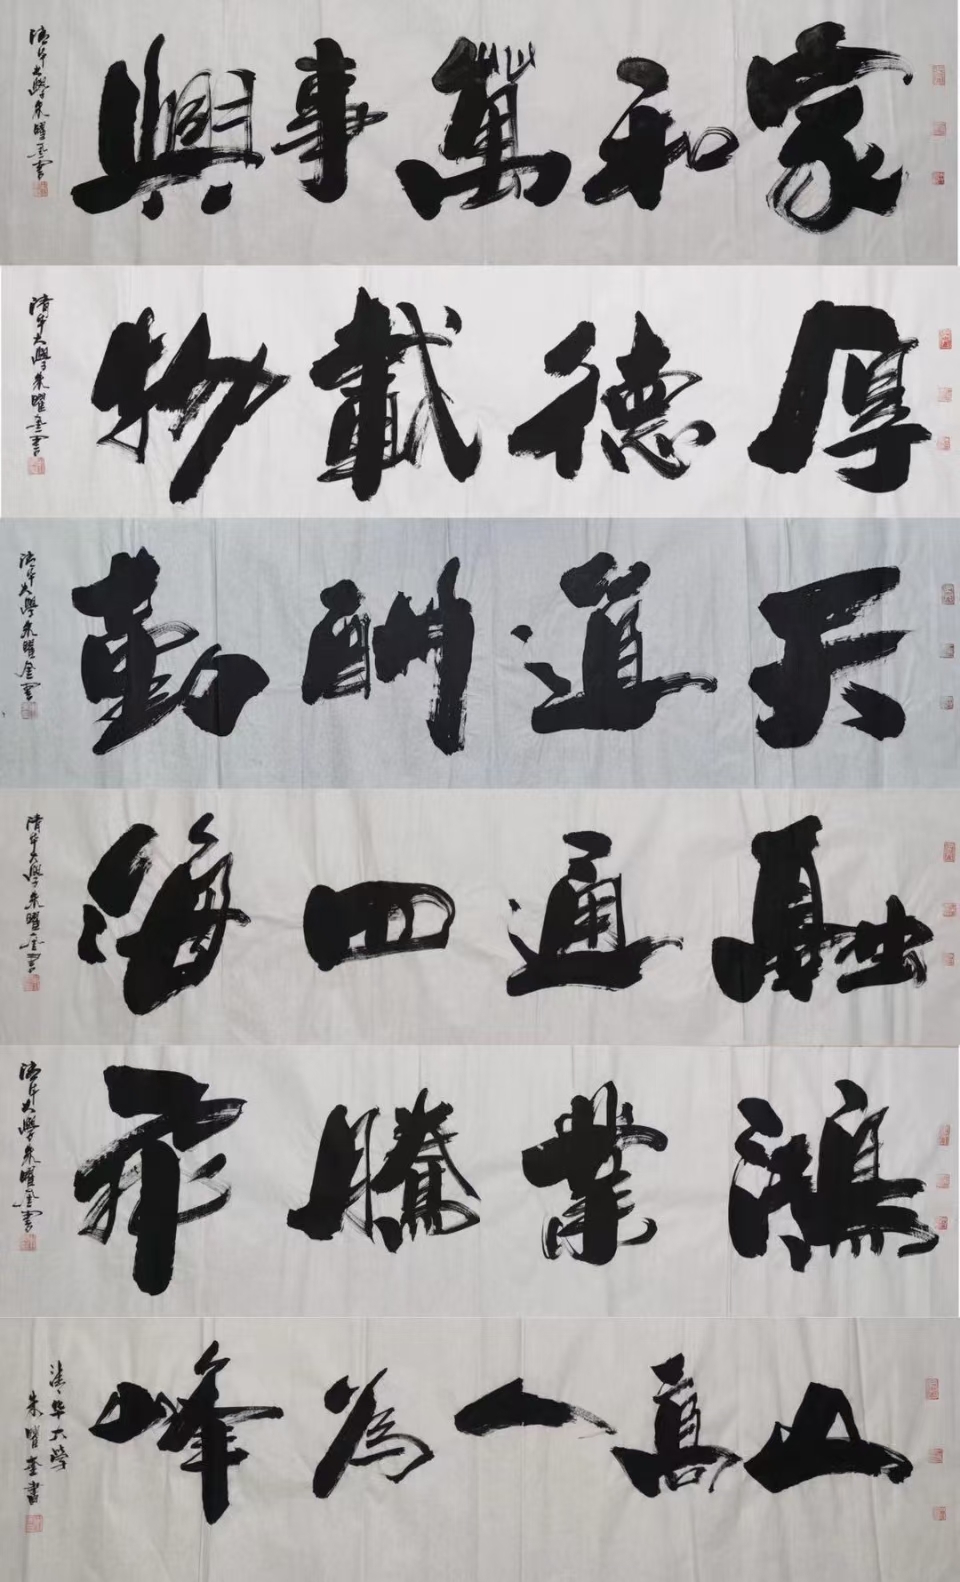 家和萬事興
清华大學朱曜奎書
厚德載物
清华大學朱曜奎書
天道酬勤
清华大學朱曜奎書
融通四海
清华大學朱曜奎書
鴻業騰飛
清华大學朱曜奎書
山高人為峰
清华大学
朱曜奎書